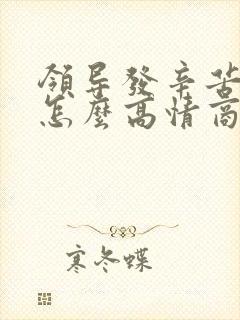 領导發辛苦
怎麼高情商
寒冬蝶